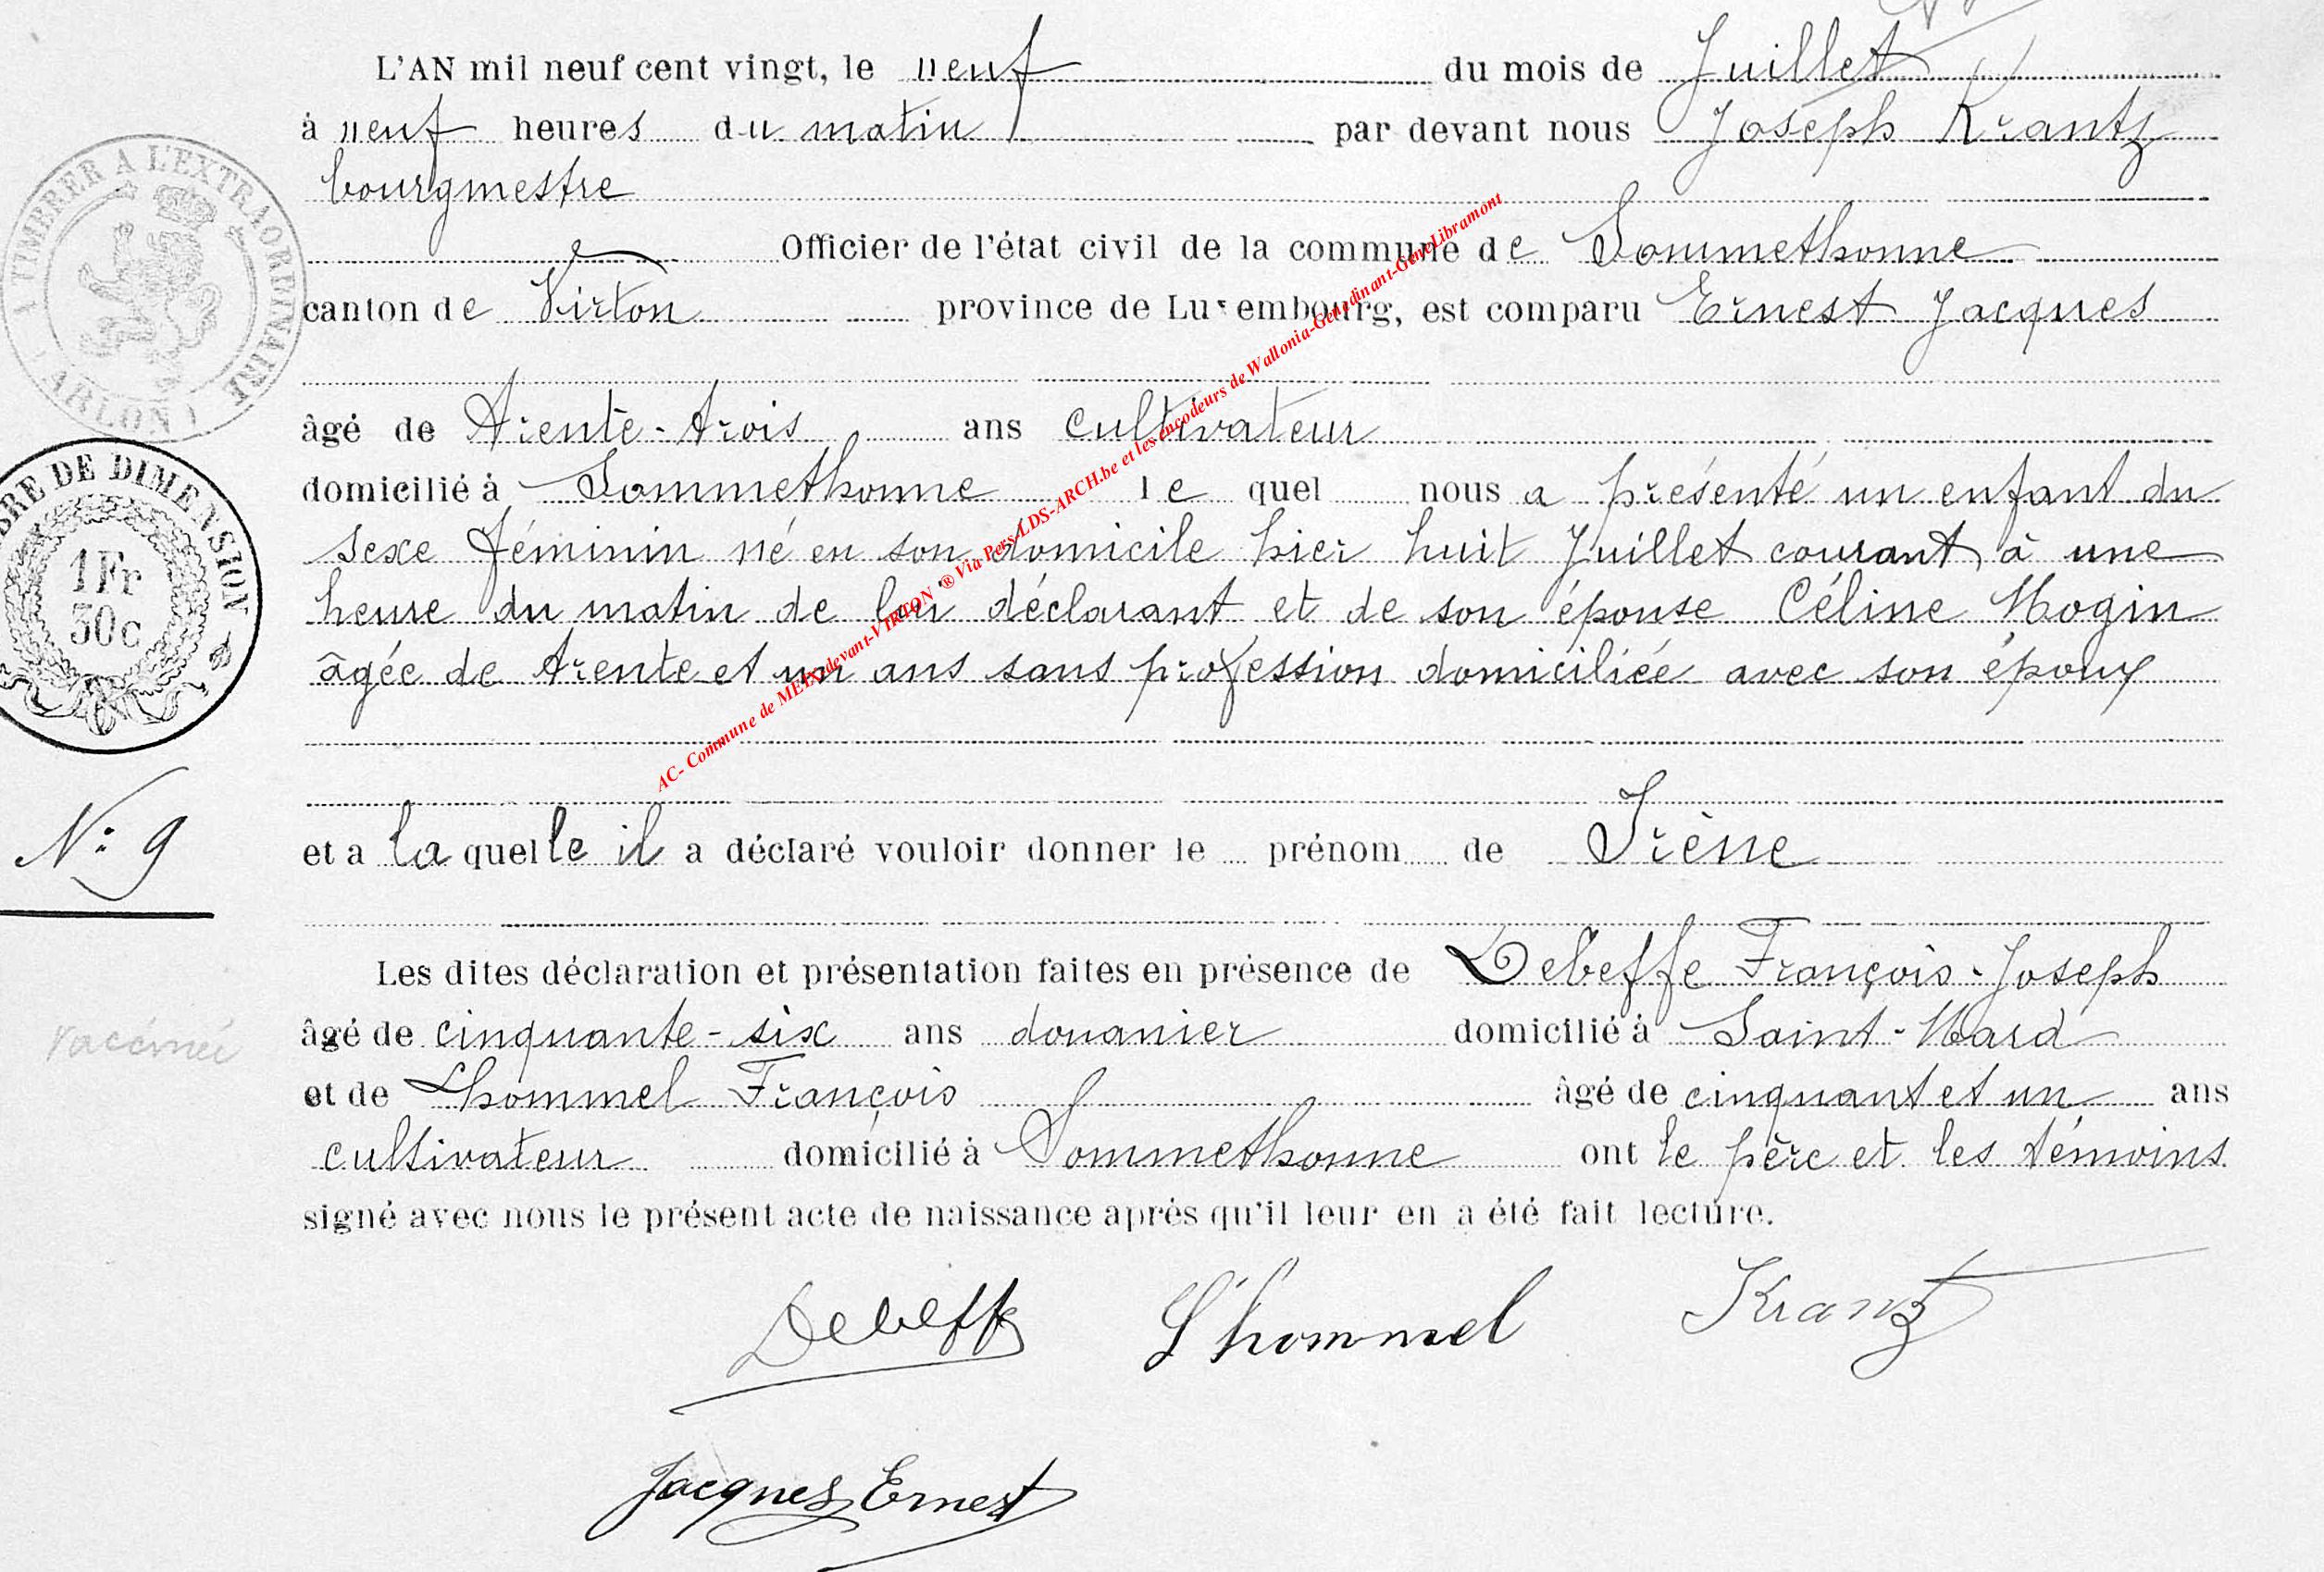 L'AN mil neuf cent vingt, le neuf du mois de Juillet
à neuf heures du matin par devant nous Joseph Krantz
bourgmestre
Officier de l'état civil de la commune de Sommethonne
canton de Virton province de Luxembourg, est comparu Ernest Jacques
âgé de trente-trois ans cultivateur
domicilié à Sommethonne le quel nous a présenté un enfant du
sexe féminin né en son domicile hier huit Juillet courant, à une
heure du matin de lui déclarant et de son épouse Céline Mogin
âgée de trente et un ans sans profession domiciliée avec son époux
et a la quelle il a déclaré vouloir donner le prénom de Irène
Les dites déclaration et présentation faites en présence de Debeffe François-Joseph
âgé de cinquante-six ans douanier domicilié à Saint-Mard
et de Lhommel François âgé de cinquant et un ans
cultivateur domicilié à Sommethonne ont le père et les témoins
signé avec nous le présent acte de naissance après qu'il leur en a été fait lecture.
Debeffe L'hommel Krantz
Jacques Ernest
A TIMBRER A L'EXTRAORDINAIRE
(ARLON)
TIMBRE DE DIMENSION
1Fr
30c
N: 9
vaccinée
AC- Commune de MEIX-devant-VIRTON ® Via Pers-LDS-ARCH.be et les encodeurs de Wallonia-Genedinant-GeneLibramont